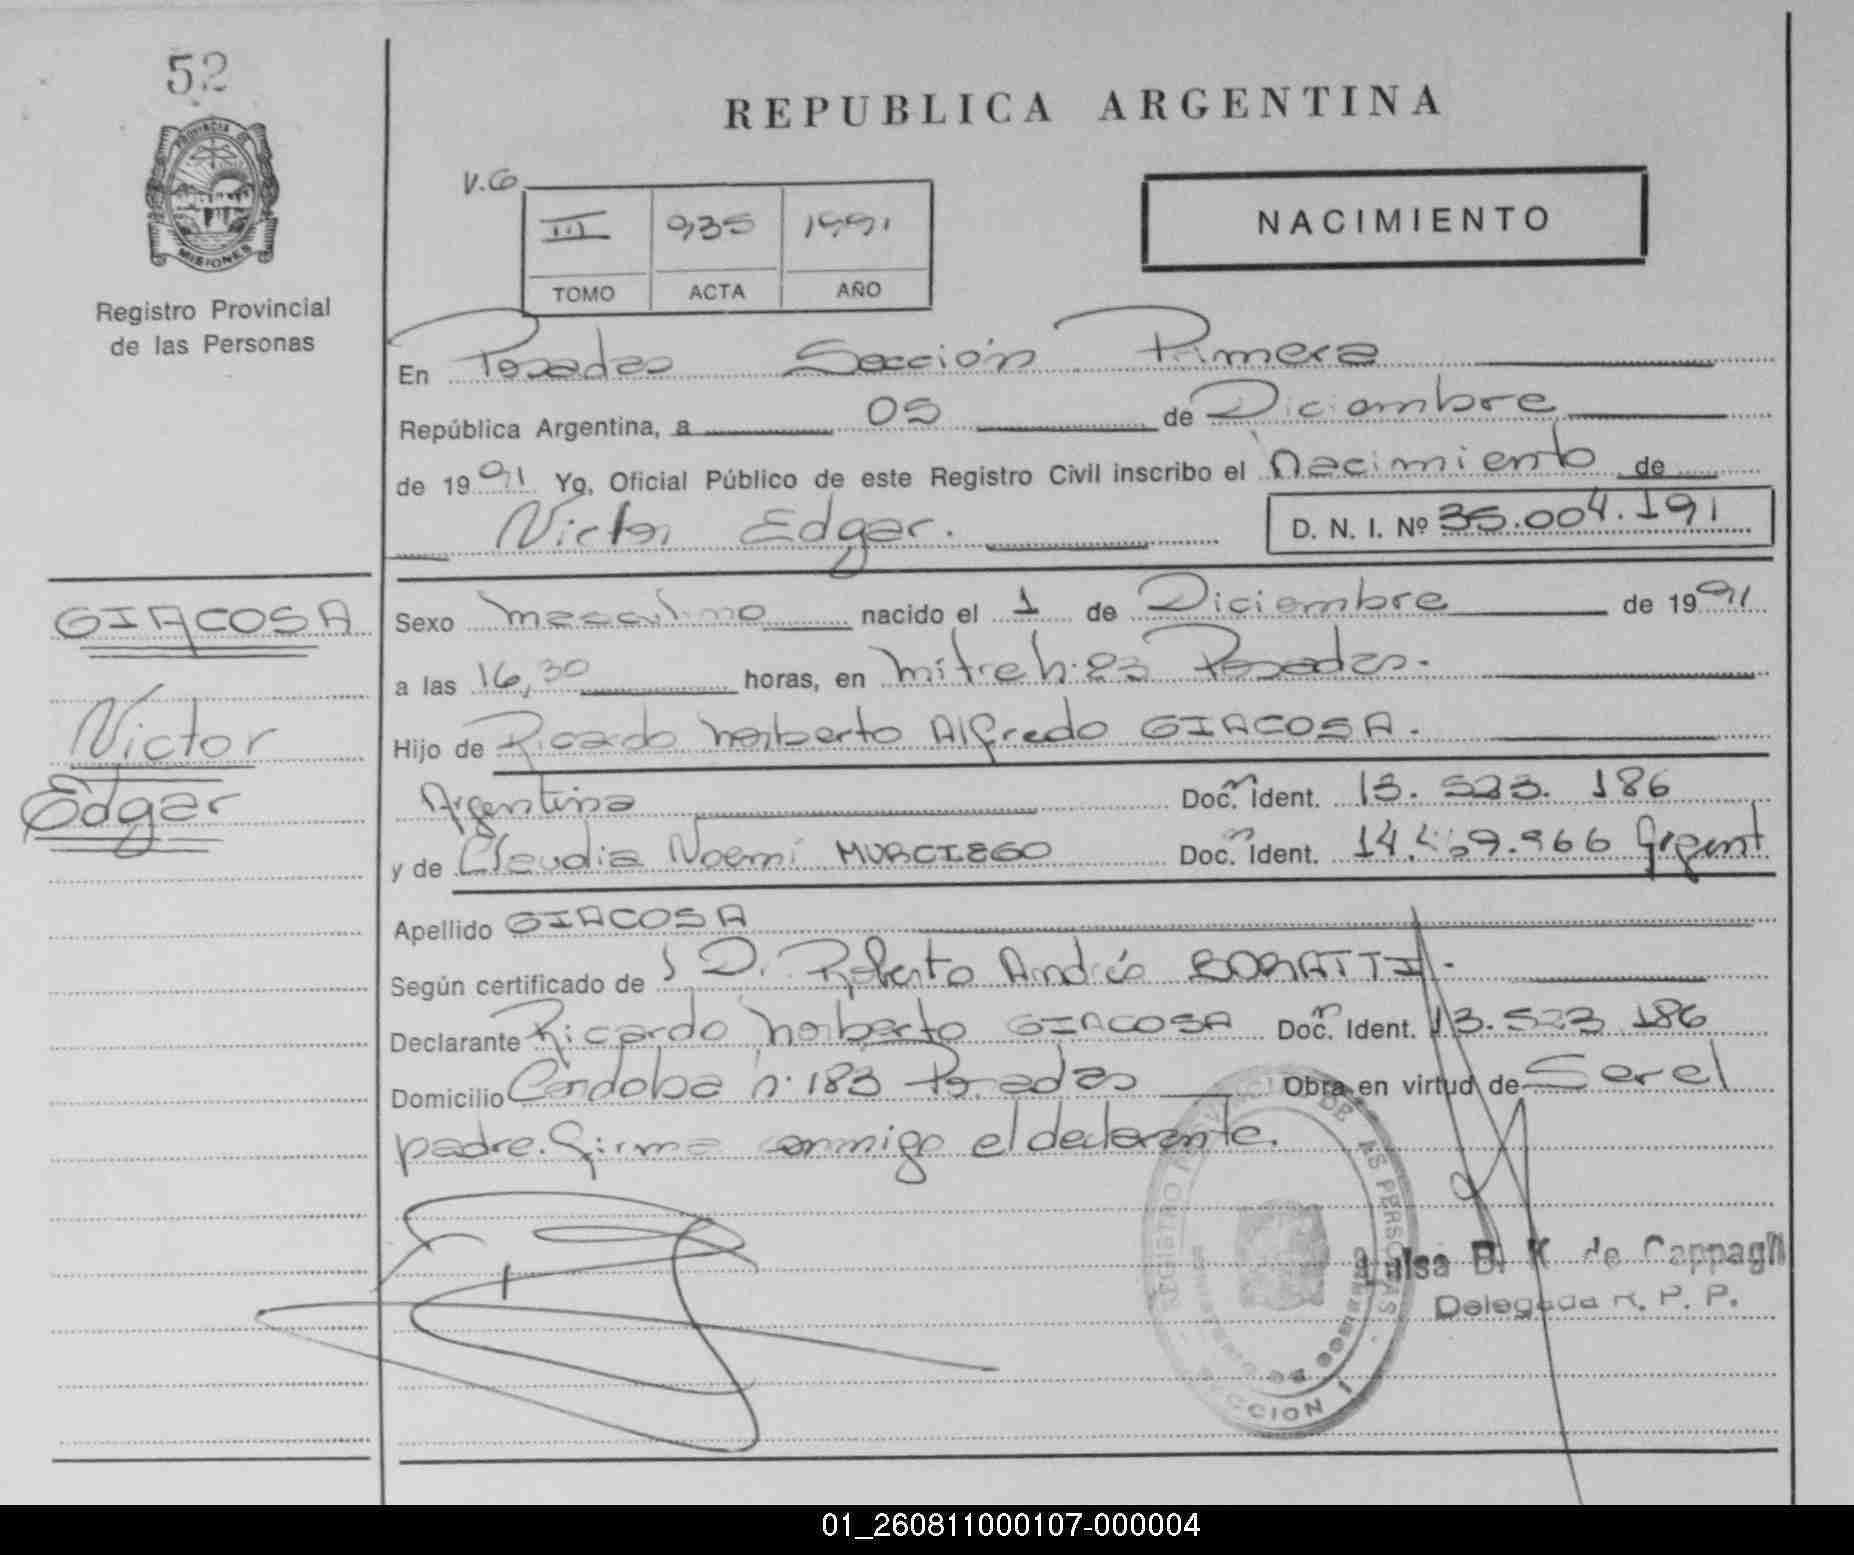 52
PROVINCIA DE
MISIONES
Registro Provincial
de las Personas
REPUBLICA ARGENTINA
V.G
III 935 1991
TOMO ACTA AÑO
NACIMIENTO
En Posadas Sección Primera
República Argentina, a 05 de Diciembre
de 1991 Yo, Oficial Público de este Registro Civil inscribo el Nacimiento de
Victor Edgar.
D. N. I. Nº 35.004.191
GIACOSA
Victor
Edgar
Sexo masculino nacido el 1 de Diciembre de 1991
a las 16,30 horas, en mitre n: 23 Posadas.
Hijo de Ricardo Norberto Alfredo GIACOSA.
Argentina Doc. Ident. 13. 523. 186
y de Claudia Noemi MURCIEGO Doc. Ident. 14. 969.966 Argent
Apellido GIACOSA
Según certificado de D. Roberto André BORATTI.
Declarante Ricardo Norberto GIACOSA Doc. Ident. 13. 523 186
Domicilio Cordoba n: 183 Posadas Obra en virtud de Ser el
padre. firma conmigo el declarante.
REGISTRO DE LAS PERSONAS
SECCION 1
Luisa B. K de Cappagli
Delegada R. P. P.
01_260811000107-000004